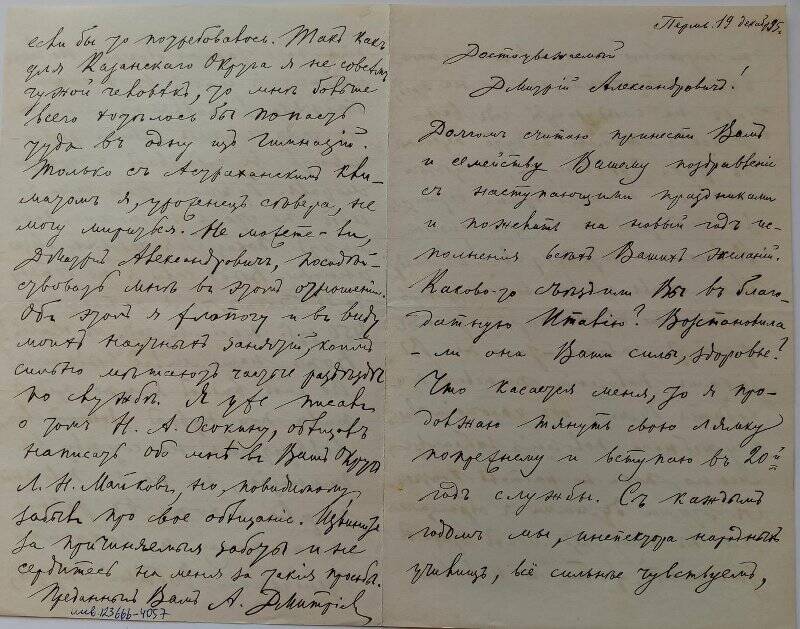 Пермь. 19 декабр. 95 г.
Достоуважаемый
Дмитрій Александровичъ!
Долгомъ считаю принести Вамъ
и семейству Вашему поздравленіе
съ наступающими праздниками
и пожелать на новый годъ ис-
полненія всѣхъ Вашихъ желаній.
Каково-то съѣздили Вы въ благо-
датную Италію? Возстановила
-ли она Ваши силы, здоровье?
Что касается меня, то я про-
должаю тянуть свою лямку
попрежнему и вступаю въ 20й
годъ службы. Съ каждымъ
годомъ мы, инспектора народныхъ
училищъ, всё сильнѣе чувствуемъ,
если бы то потребовалось. Такъ какъ
для Казанскаго Округа я не совсѣмъ
чужой человѣкъ, то мнѣ больше
всего хотѣлось бы попасть
туда въ одну изъ гимназій.
Только съ Астраханскимъ кли-
матомъ я, уроженецъ сѣвера, не
могу мириться. Не можете-ли,
Дмитрій Александровичъ, посодѣй-
ствовать мнѣ въ этомъ отношеніи.
Объ этомъ я хлопочу и въ виду
моихъ научныхъ занятій, коимъ
сильно мѣшаютъ частые разъѣзды
по службѣ. Я уже писалъ
о томъ Н. А. Осокину, обѣщалъ
написать обо мнѣ въ Вашъ Округъ
Л. Н. Майковъ, но, повидимому,
забылъ про свое обѣщаніе. Извините
за причиняемыя заботы и не
сердитесь на меня за такія просьбы.
Преданный Вамъ А. Дмитріевъ
инв. 123666-4057